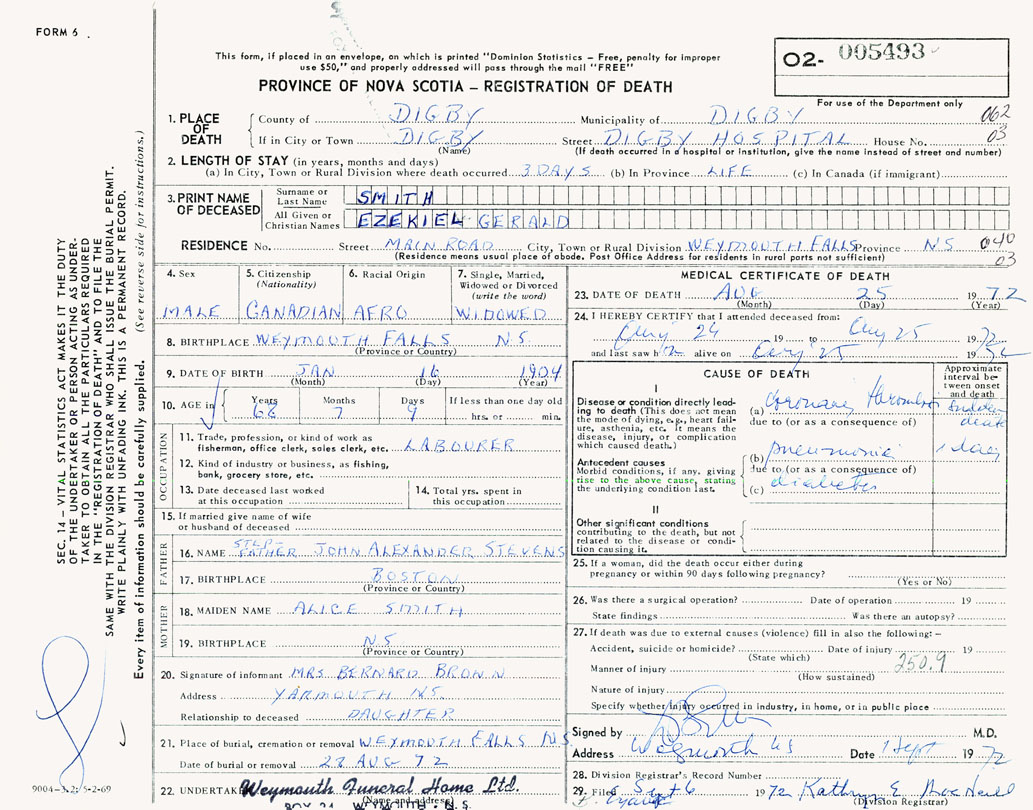 FORM 6
This form, if placed in an envelope, on which is printed "Dominion Statistics - Free, penalty for improper
use $50," and properly addressed will pass through the mail "FREE"
PROVINCE OF NOVA SCOTIA – REGISTRATION OF DEATH
O2- 005493
For use of the Department only
1. PLACE OF DEATH
County of DIGBY Municipality of DIGBY 062
If in City or Town DIGBY Street DIGBY HOSPITAL House No. 03
(Name) (If death occurred in a hospital or institution, give the name instead of street and number)
2. LENGTH OF STAY (in years, months and days)
(a) In City, Town or Rural Division where death occurred 3 DAYS (b) In Province LIFE (c) In Canada (if immigrant)
3. PRINT NAME OF DECEASED
Surname or Last Name SMITH
All Given or Christian Names EZEKIEL GERALD
RESIDENCE No. Street MAIN ROAD City, Town or Rural Division WEYMOUTH FALLS Province N.S 040
(Residence means usual place of abode. Post Office Address for residents in rural parts not sufficient) 03
4. Sex MALE
5. Citizenship (Nationality) CANADIAN
6. Racial Origin AFRO
7. Single, Married, Widowed or Divorced (write the word) WIDOWED
8. BIRTHPLACE WEYMOUTH FALLS N.S.
(Province or Country)
9. DATE OF BIRTH JAN 16 1904
(Month) (Day) (Year)
10. AGE in Years 68 Months 7 Days 9 If less than one day old
hrs. or min.
OCCUPATION
11. Trade, profession, or kind of work as
fisherman, office clerk, sales clerk, etc. LABOURER
12. Kind of industry or business, as fishing,
bank, grocery store, etc.
13. Date deceased last worked
at this occupation
14. Total yrs. spent in
this occupation
15. If married give name of wife
or husband of deceased
FATHER
16. NAME STEP-FATHER JOHN ALEXANDER STEVENS
17. BIRTHPLACE BOSTON
(Province or Country)
MOTHER
18. MAIDEN NAME ALICE SMITH
19. BIRTHPLACE N.S
(Province or Country)
20. Signature of informant MRS BERNARD BROWN
Address YARMOUTH N.S.
Relationship to deceased DAUGHTER
21. Place of burial, cremation or removal WEYMOUTH FALLS N.S.
Date of burial or removal 28 AUG 72
22. UNDERTAK Weymouth Funeral Home Ltd.
(Name and address)
BOX 21 WEYMOUTH - N.S.
MEDICAL CERTIFICATE OF DEATH
23. DATE OF DEATH AUG 25 1972
(Month) (Day) (Year)
24. I HEREBY CERTIFY that I attended deceased from:
Aug 24 19 to Aug 25 1972
and last saw him alive on Aug 25 1972
CAUSE OF DEATH
Approximate interval between onset and death
I
Disease or condition directly leading to death (This does not mean the mode of dying, e.g., heart failure, asthenia, etc. It means the disease, injury, or complication which caused death.)
(a) Coronary thrombosis sudden death
due to (or as a consequence of)
Antecedent causes
Morbid conditions, if any, giving rise to the above cause, stating the underlying condition last.
(b) pneumonia 1 day
due to (or as a consequence of)
(c) diabetes
II
Other significant conditions
contributing to the death, but not related to the disease or condition causing it.
25. If a woman, did the death occur either during
pregnancy or within 90 days following pregnancy?
(Yes or No)
26. Was there a surgical operation? Date of operation 19
State findings Was there an autopsy?
27. If death was due to external causes (violence) fill in also the following: –
Accident, suicide or homicide? Date of injury 19
(State which)
Manner of injury 250.9
(How sustained)
Nature of injury
Specify whether injury occurred in industry, in home, or in public place
Signed by M.D.
Address Weymouth NS Date 1 Sept 1972
28. Division Registrar's Record Number
29. Filed Sept 6 1972 Kathryn E.
(Division Registrar)
SEC. 14 – VITAL STATISTICS ACT MAKES IT THE DUTY
OF THE UNDERTAKER OR PERSON ACTING AS UNDER-
TAKER TO OBTAIN ALL THE PARTICULARS REQUIRED
IN THE "REGISTRATION OF DEATH" AND TO FILE THE
SAME WITH THE DIVISION REGISTRAR WHO SHALL ISSUE THE BURIAL PERMIT.
WRITE PLAINLY WITH UNFADING INK. THIS IS A PERMANENT RECORD.
Every item of information should be carefully supplied. (See reverse side for instructions.)